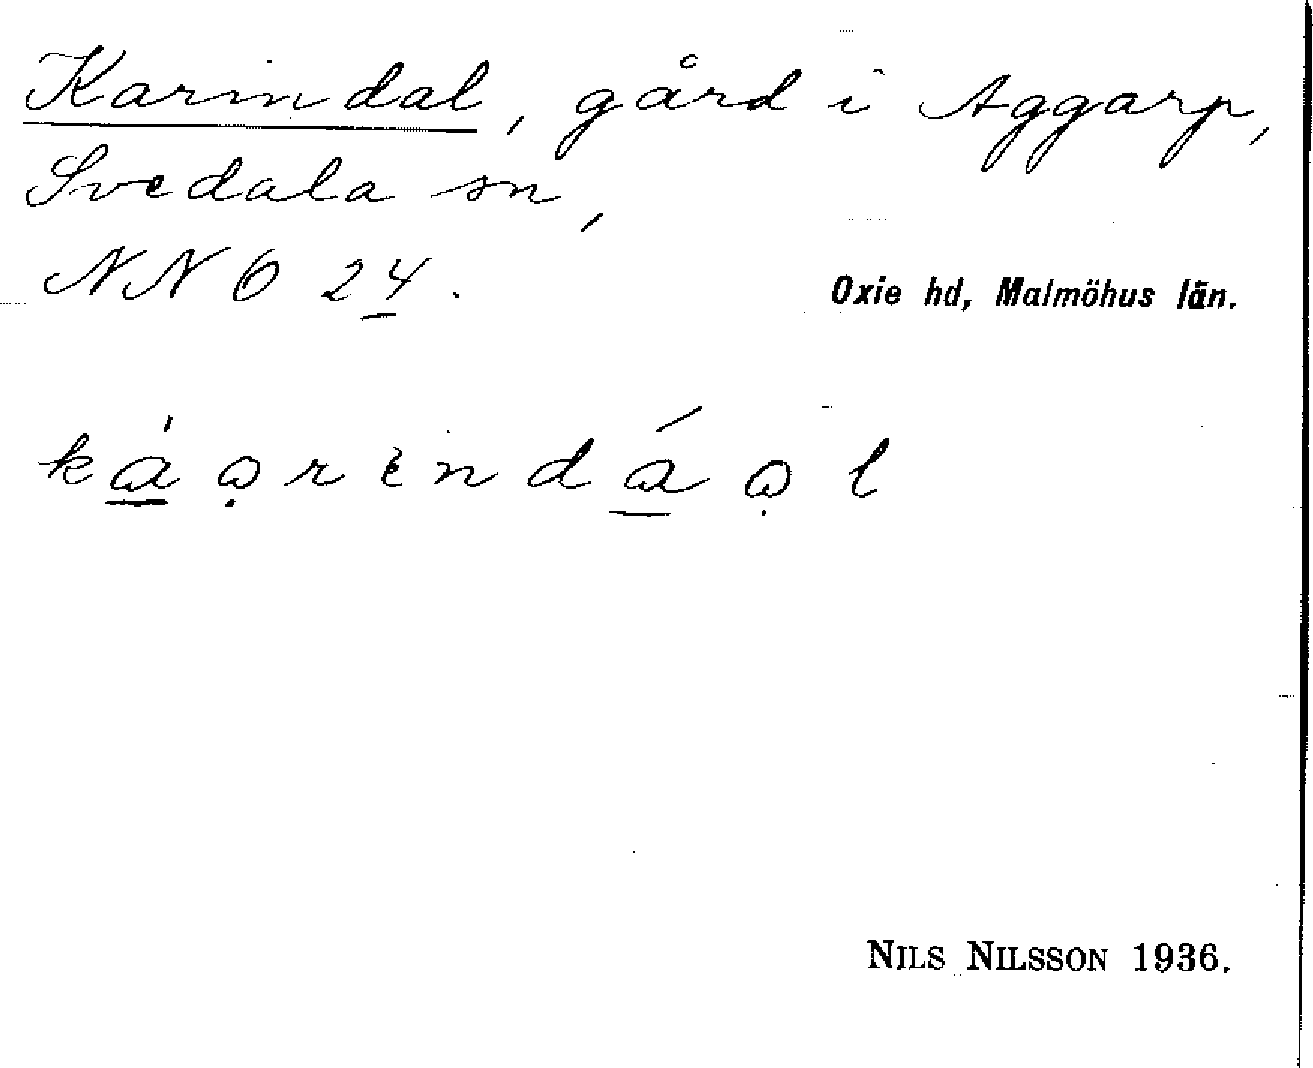 Karindal, gård i Aggarp,
Svedala sn,
NNO 24.
Oxie hd, Malmöhus län.
NILS NILSSON 1936.